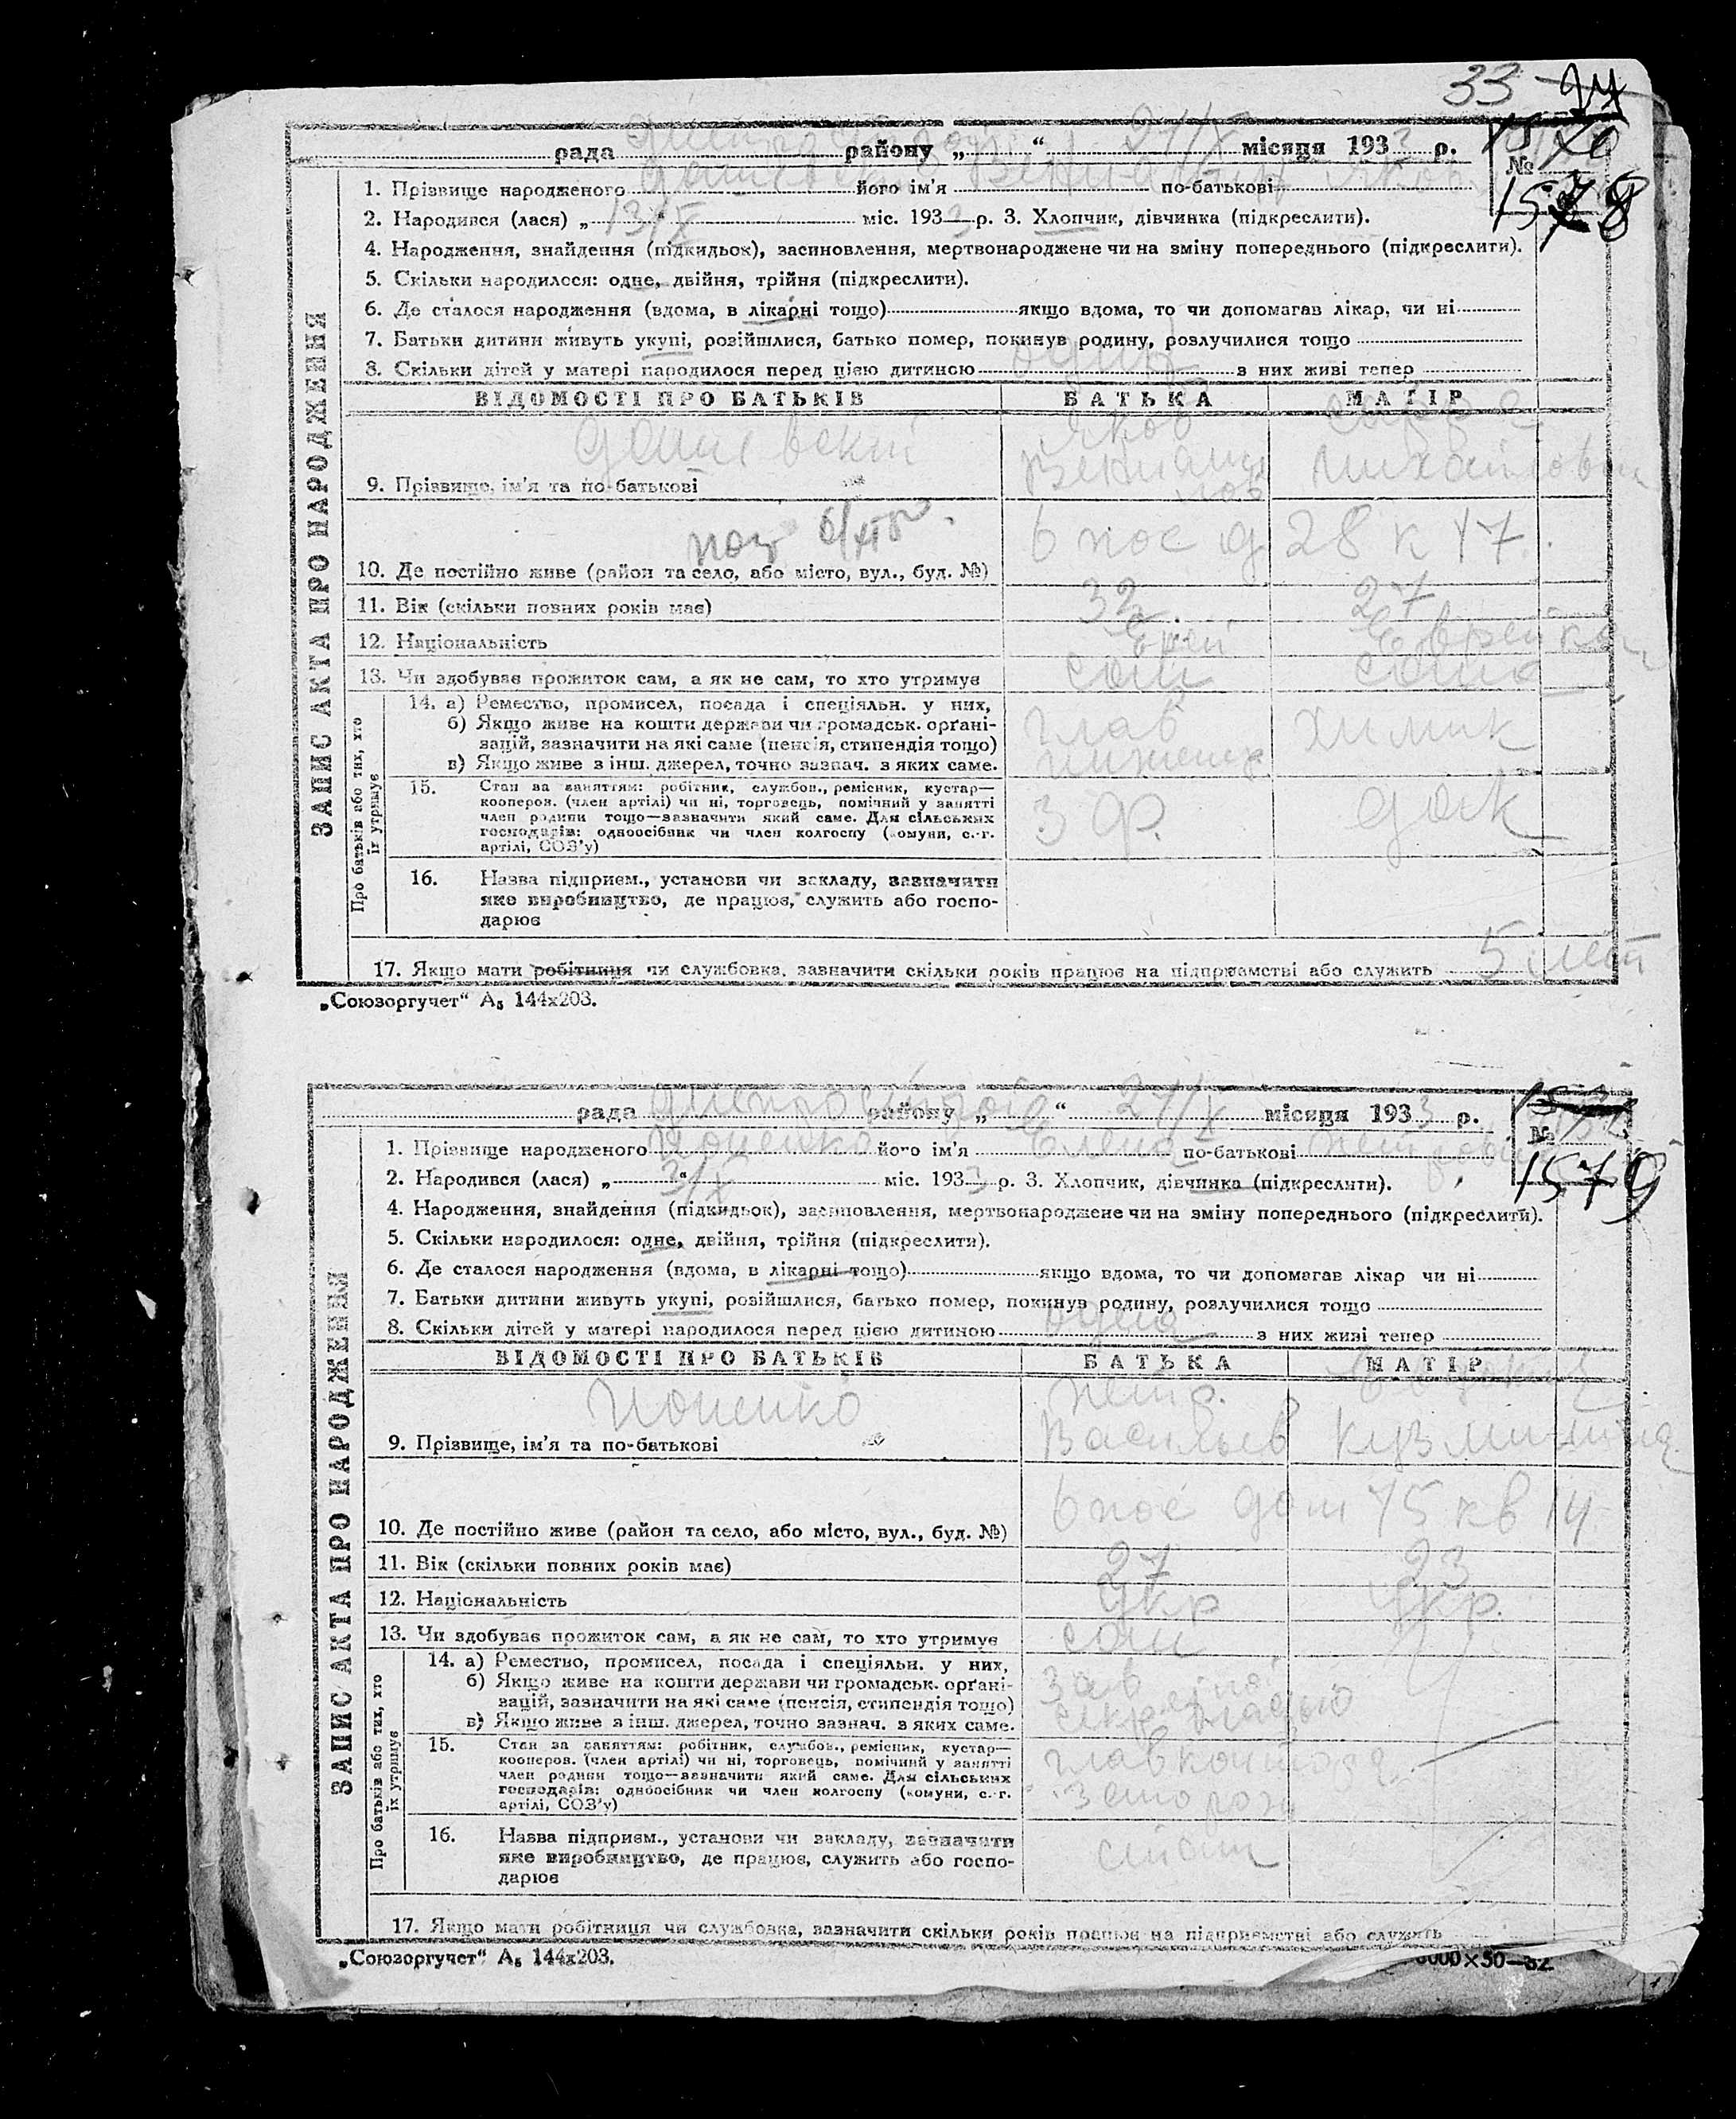 33
рада району „ “ 27/IX місяця 1933 р.
№
1578
1. Прізвище народженого його ім'я по-батькові
2. Народився (лася) „ 13/ “ міс. 1933 р. 3. Хлопчик, дівчинка (підкреслити).
4. Народження, знайдення (підкидьок), засиновлення, мертвонароджене чи на зміну попереднього (підкреслити).
5. Скільки народилося: одне, двійня, трійня (підкреслити).
6. Де сталося народження (вдома, в лікарні тощо) якщо вдома, то чи допомагав лікар, чи ні
7. Батьки дитини живуть укупі, розійшлися, батько помер, покинув родину, розлучилися тощо
8. Скільки дітей у матері народилося перед цією дитиною одна з них живі тепер
ЗАПИС АКТА ПРО НАРОДЖЕННЯ
ВІДОМОСТІ ПРО БАТЬКІВ БАТЬКА МАТІР
Яков
Михайловн
9. Прізвище, ім'я та по-батькові
6 пос д 28 к 17.
10. Де постійно живе (район та село, або місто, вул., буд. №)
11. Вік (скільки повних років має) 32 27
12. Національність Еврей Еврейка
13. Чи здобуває прожиток сам, а як не сам, то хто утримує сам сама
Про батьків або тих, хто їх утримує
14. а) Ремество, промисел, посада і спеціяльн. у них,
б) Якщо живе на кошти держави чи громадськ. орґані-
зацій, зазначити на які саме (пенсія, стипендія тощо)
в) Якщо живе з інш. джерел, точно зазнач. з яких саме.
глав химик
15. Стан за заняттям: робітник, службов., ремісник, кустар—
коопероз. (член артілі) чи ні, торговець, помічний у занятті
член родини тощо—зазначити який саме. Для сільських
господарів: одноосібник чи член колгоспу (комуни, с.-г.
артілі, СОЗ'у)
16. Назва підприєм., установи чи закладу, зазначити
яке виробництво, де працює, служить або госпо-
дарює
17. Якщо мати робітниця чи службовка, зазначити скільки років працює на підприємстві або служить 5 лет
„Союзоргучет“ А₅ 144х203.
рада району „ “ 27/IX місяця 1933 р.
№
1579
1. Прізвище народженого його ім'я Елена по-батькові
2. Народився (лася) „ 3/ “ міс. 1933 р. 3. Хлопчик, дівчинка (підкреслити).
4. Народження, знайдення (підкидьок), засиновлення, мертвонароджене чи на зміну попереднього (підкреслити).
5. Скільки народилося: одне, двійня, трійня (підкреслити).
6. Де сталося народження (вдома, в лікарні тощо) якщо вдома, то чи допомагав лікар чи ні
7. Батьки дитини живуть укупі, розійшлися, батько помер, покинув родину, розлучилися тощо
8. Скільки дітей у матері народилося перед цією дитиною одна з них живі тепер
ЗАПИС АКТА ПРО НАРОДЖЕННЯ
ВІДОМОСТІ ПРО БАТЬКІВ БАТЬКА МАТІР
Петр.
Васильев
9. Прізвище, ім'я та по-батькові
6 пос дом 15 кв 14
10. Де постійно живе (район та село, або місто, вул., буд. №)
11. Вік (скільки повних років має) 27 23
12. Національність Укр Укр.
13. Чи здобуває прожиток сам, а як не сам, то хто утримує сам
Про батьків або тих, хто їх утримує
14. а) Ремество, промисел, посада і спеціяльн. у них,
б) Якщо живе на кошти держави чи громадськ. орґані-
зацій, зазначити на які саме (пенсія, стипендія тощо)
в) Якщо живе з інш. джерел, точно зазнач. з яких саме.
зав
15. Стан за заняттям: робітник, службов., ремісник, кустар—
кооперов. (член артілі) чи ні, торговець, помічний у занятті
член родини тощо—зазначити який саме. Для сільських
господарів: одноосібник чи член колгоспу (комуни, с.-г.
артілі, СОЗ'у)
16. Назва підприєм., установи чи закладу, зазначити
яке виробництво, де працює, служить або госпо-
дарює
17. Якщо мати робітниця чи службовка, зазначити скільки років працює на підприємстві або служить
„Союзоргучет“ А₅ 144х203.